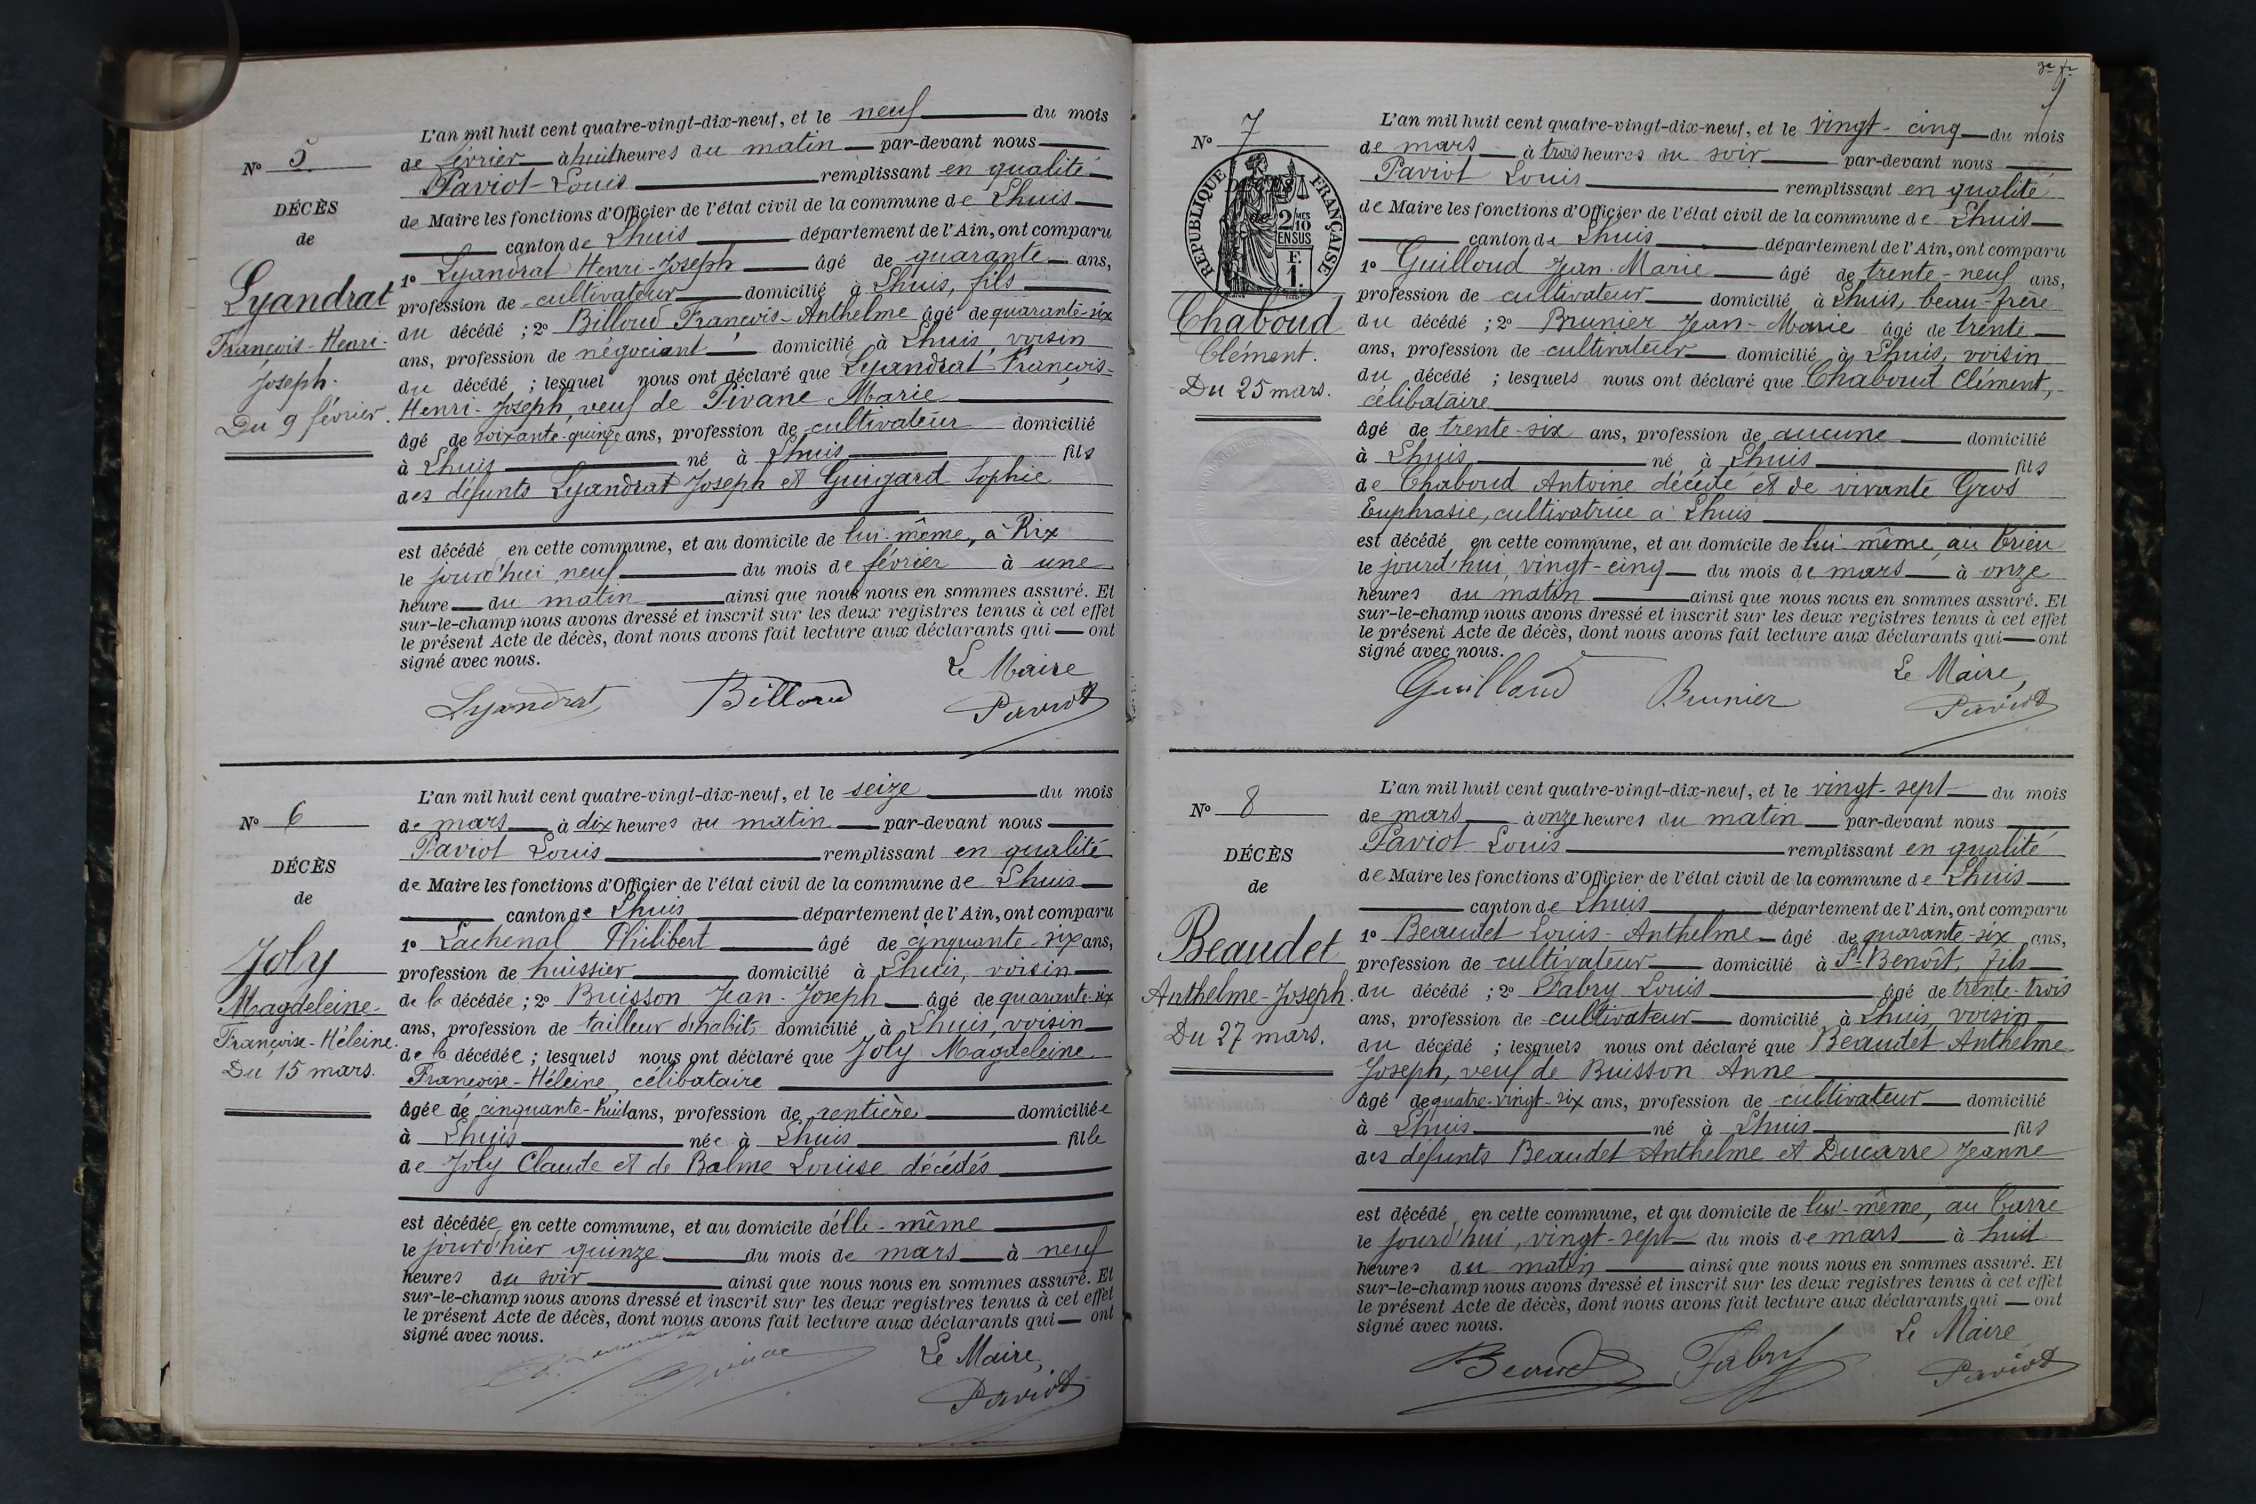 Nº 5
DÉCÈS
de
Lyandrat
François-Henri-
Joseph.
Du 9 février.
L'an mil huit cent quatre-vingt-dix-neuf, et le neuf du mois
de février à huit heures du matin par-devant nous
Paviot Louis remplissant en qualité
de Maire les fonctions d'Officier de l'état civil de la commune de Lhuis
canton de Lhuis département de l'Ain, ont comparu
1º Lyandrat Henri-Joseph âgé de quarante ans,
profession de cultivateur domicilié à Lhuis, fils
du décédé ; 2º Billoud François-Anthelme âgé de quarante-six
ans, profession de négociant domicilié à Lhuis, voisin
du décédé ; lesquel nous ont déclaré que Lyandrat François-
Henri-Joseph, veuf de Pivane Marie
âgé de soixante-quinze ans, profession de cultivateur domicilié
à Lhuis né à Lhuis fils
des défunts Lyandrat Joseph et Guigard Sophie
est décédé en cette commune, et au domicile de lui-même, à Rix
le jourd'hui neuf du mois de février à une
heure du matin ainsi que nous nous en sommes assuré. Et
sur-le-champ nous avons dressé et inscrit sur les deux registres tenus à cet effet
le présent Acte de décès, dont nous avons fait lecture aux déclarants qui ont
signé avec nous.
Le Maire
Lyandrat Billoud Paviot
Nº 6
DÉCÈS
de
Joly
Magdeleine-
Françoise-Héleine.
Du 15 mars.
L'an mil huit cent quatre-vingt-dix-neuf, et le seize du mois
de mars à dix heures du matin par-devant nous
Paviot Louis remplissant en qualité
de Maire les fonctions d'Officier de l'état civil de la commune de Lhuis
canton de Lhuis département de l'Ain, ont comparu
1º Lachenal Philibert âgé de cinquante-six ans,
profession de huissier domicilié à Lhuis, voisin
de la décédée ; 2º Buisson Jean-Joseph âgé de quarante-six
ans, profession de tailleur d'habits domicilié à Lhuis, voisin
de la décédée ; lesquels nous ont déclaré que Joly Magdeleine
Françoise-Héleine, célibataire
âgée de cinquante-huit ans, profession de rentière domiciliée
à Lhuis née à Lhuis fille
de Joly Claude et de Balme Louise décédés
est décédée en cette commune, et au domicile d'elle-même
le jourd'hier quinze du mois de mars à neuf
heures du soir ainsi que nous nous en sommes assuré. Et
sur-le-champ nous avons dressé et inscrit sur les deux registres tenus à cet effet
le présent Acte de décès, dont nous avons fait lecture aux déclarants qui ont
signé avec nous.
Le Maire,
Paviot
Nº 7
RÉPUBLIQUE FRANÇAISE
2/10 MES
EN SUS
F.
1.
Chaboud
Clément.
Du 25 mars.
L'an mil huit cent quatre-vingt-dix-neuf, et le vingt-cinq du mois
de mars à trois heures du soir par-devant nous
Paviot Louis remplissant en qualité
de Maire les fonctions d'Officier de l'état civil de la commune de Lhuis
canton de Lhuis département de l'Ain, ont comparu
1º Guilloud Jean-Marie âgé de trente-neuf ans,
profession de cultivateur domicilié à Lhuis, beau-frère
du décédé ; 2º Brunier Jean-Marie âgé de trente
ans, profession de cultivateur domicilié à Lhuis, voisin
du décédé ; lesquels nous ont déclaré que Chaboud Clément,
célibataire
âgé de trente-six ans, profession de aucune domicilié
à Lhuis né à Lhuis fils
de Chaboud Antoine décédé et de vivante Gros
Euphrasie, cultivatrice à Lhuis
est décédé en cette commune, et au domicile de lui-même, au Crieu
le jourd'hui, vingt-cinq du mois de mars à onze
heures du matin ainsi que nous nous en sommes assuré. Et
sur-le-champ nous avons dressé et inscrit sur les deux registres tenus à cet effet
le présent Acte de décès, dont nous avons fait lecture aux déclarants qui ont
signé avec nous.
Le Maire,
Guilloud Brunier Paviot
Nº 8
DÉCÈS
de
Beaudet
Anthelme-Joseph.
Du 27 mars.
L'an mil huit cent quatre-vingt-dix-neuf, et le vingt-sept du mois
de mars à onze heures du matin par-devant nous
Paviot Louis remplissant en qualité
de Maire les fonctions d'Officier de l'état civil de la commune de Lhuis
canton de Lhuis département de l'Ain, ont comparu
1º Beaudet Louis-Anthelme âgé de quarante-six ans,
profession de cultivateur domicilié à St Benoît, fils
du décédé ; 2º Fabry Louis âgé de trente-trois
ans, profession de cultivateur domicilié à Lhuis, voisin
du décédé ; lesquels nous ont déclaré que Beaudet Anthelme
Joseph, veuf de Buisson Anne
âgé de quatre-vingt-six ans, profession de cultivateur domicilié
à Lhuis né à Lhuis fils
des défunts Beaudet Anthelme et Ducarre Jeanne
est décédé en cette commune, et au domicile de lui-même, au Carre
le jourd'hui, vingt-sept du mois de mars à huit
heures du matin ainsi que nous nous en sommes assuré. Et
sur-le-champ nous avons dressé et inscrit sur les deux registres tenus à cet effet
le présent Acte de décès, dont nous avons fait lecture aux déclarants qui ont
signé avec nous.
Le Maire
Beaudet Fabry Paviot